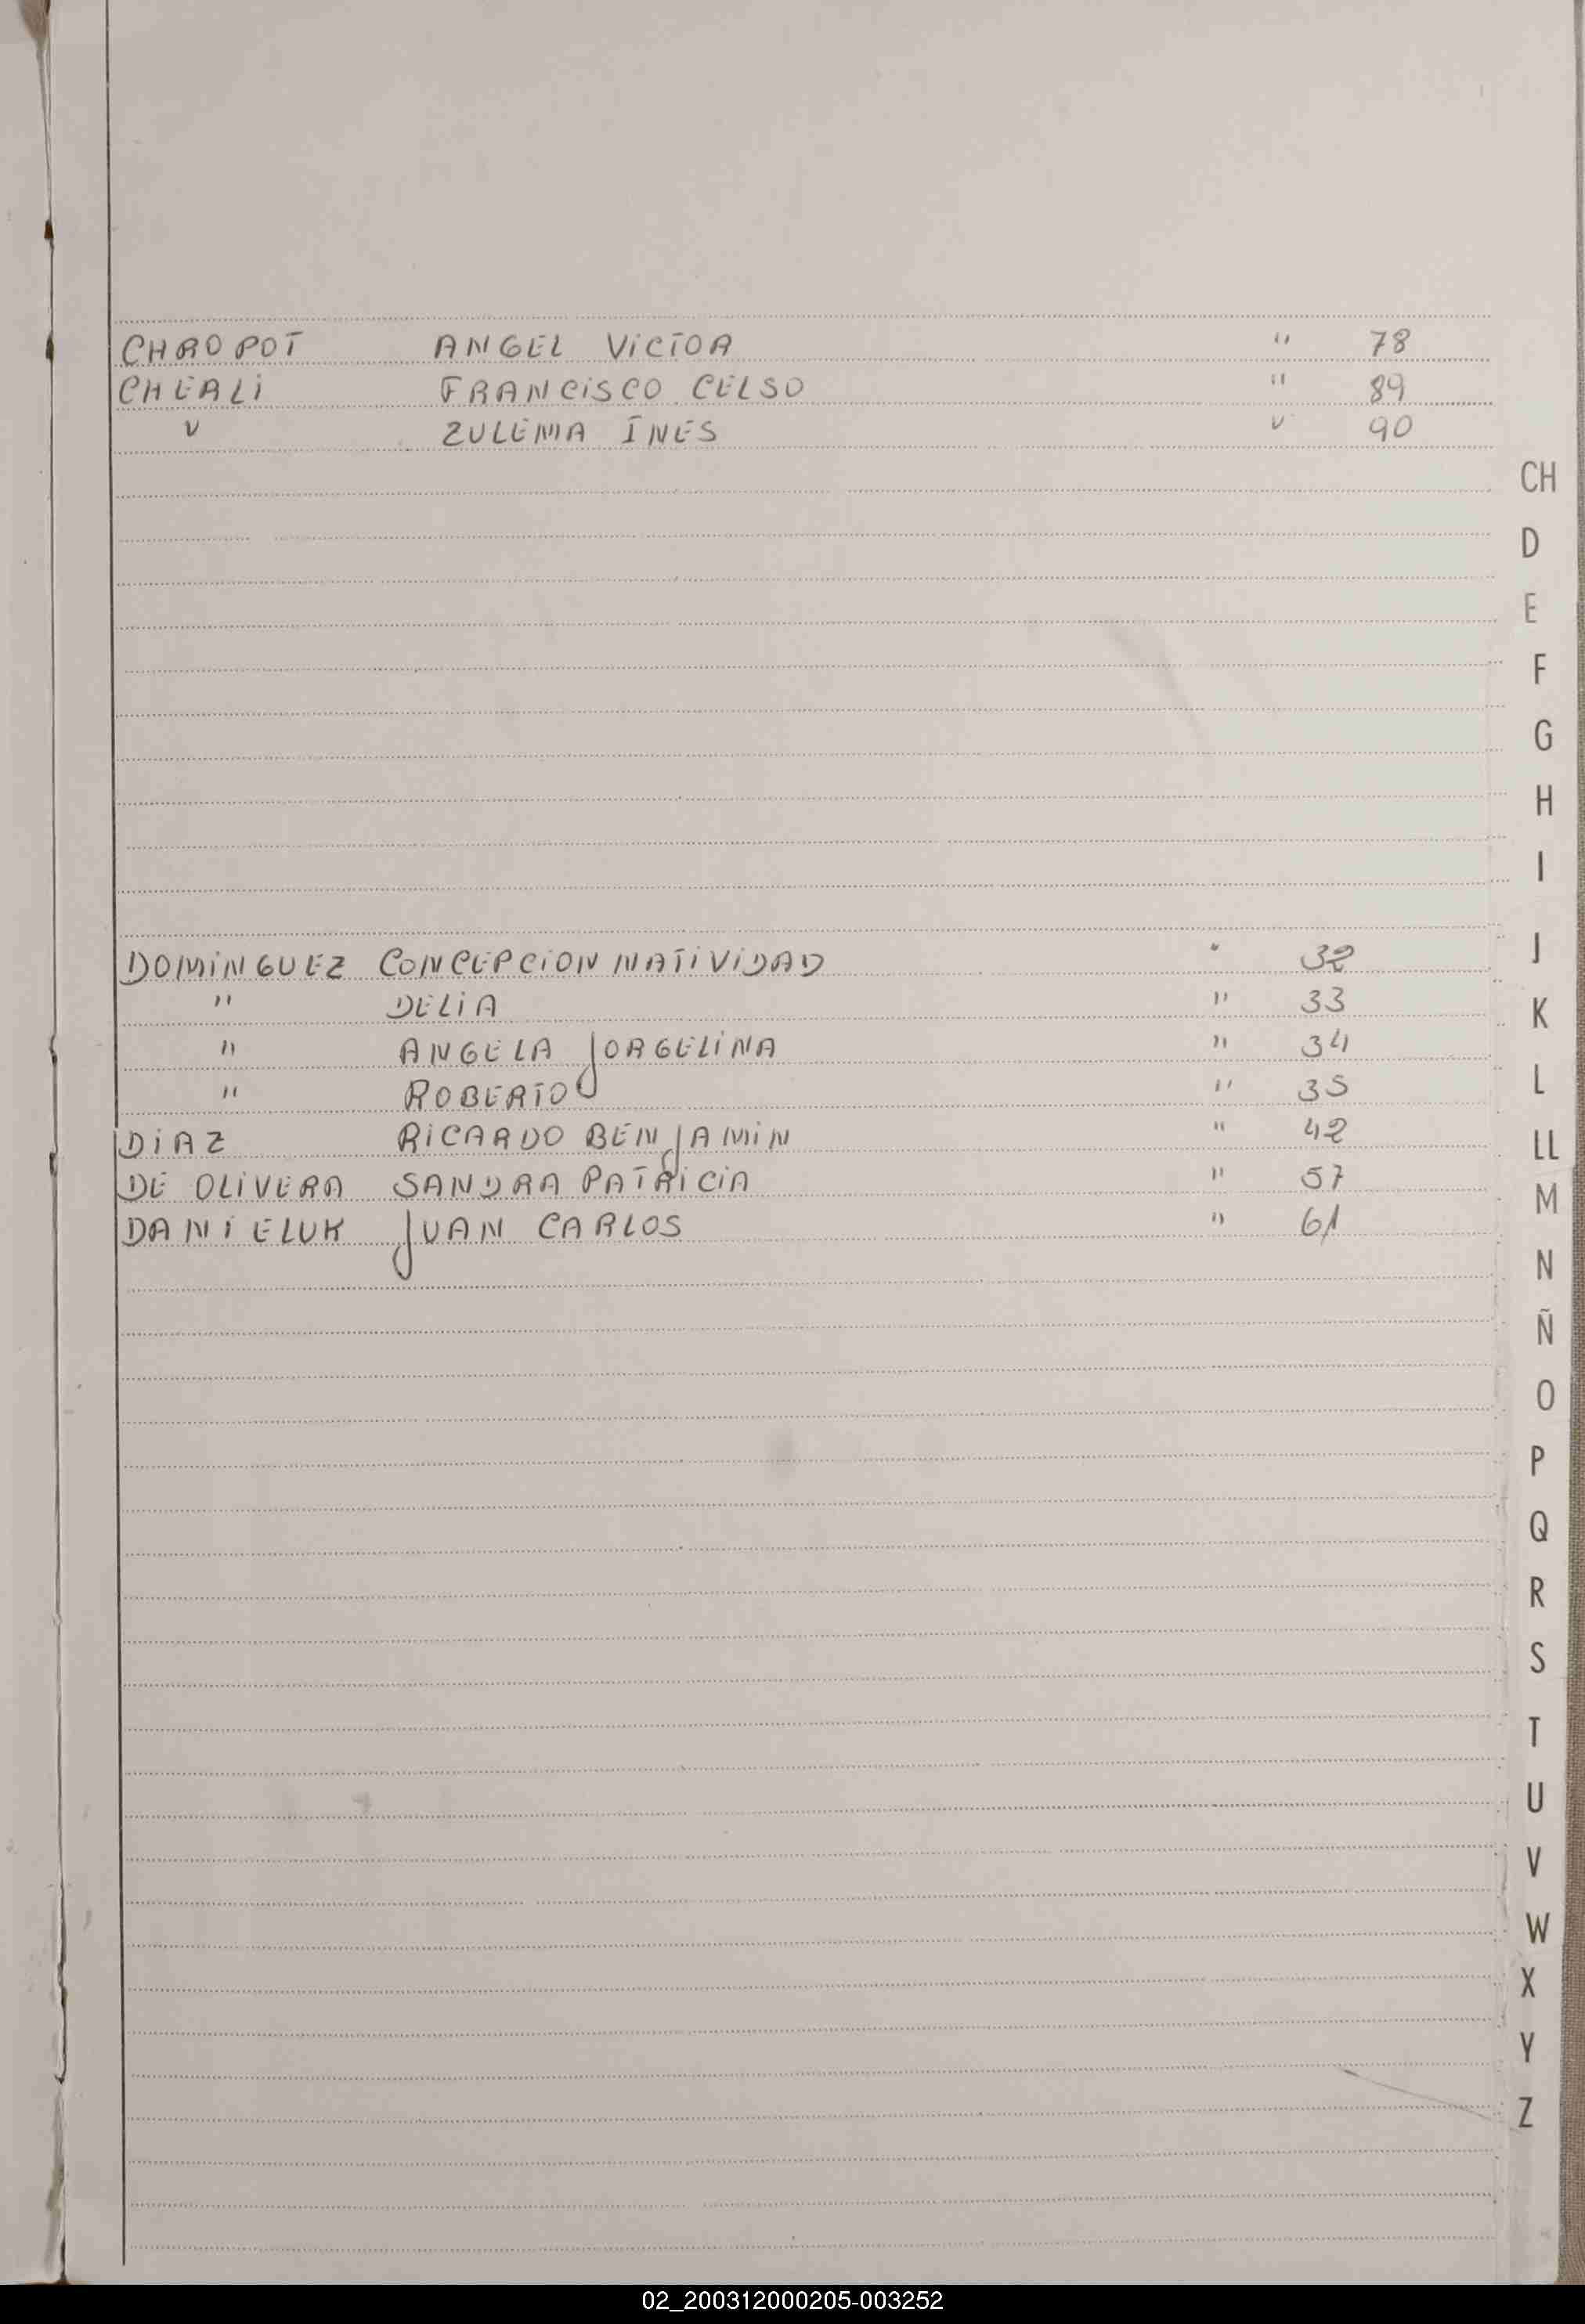 CHROPOT ANGEL VICTOR " 78
CHERLI FRANCISCO CELSO " 89
" ZULEMA INES " 90
CH
D
E
F
G
H
I
DOMINGUEZ CONCEPCION NATIVIDAD " 32
J
" DELIA " 33
K
" ANGELA JORGELINA " 34
" ROBERTO " 35
L
DIAZ RICARDO BENJAMIN " 42
LL
DE OLIVERA SANDRA PATRICIA " 57
M
DANIELUK JUAN CARLOS " 61
N
Ñ
O
P
Q
R
S
T
U
V
W
X
Y
Z
02_200312000205-003252